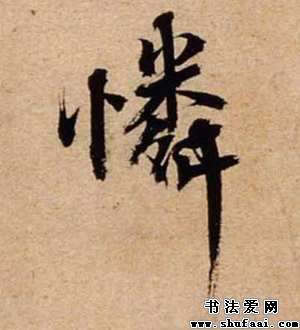 憐
书法爱网
www.shufaai.com